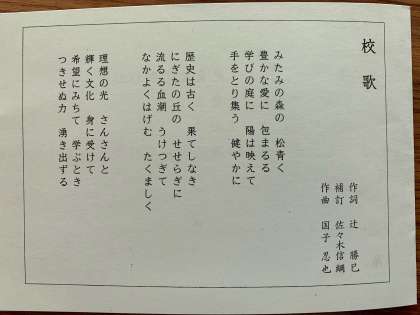 校歌
作詞 辻 勝巳
補訂 佐々木信綱
作曲 国子 忍也
みたみの森の 松青く
豊かな愛に 包まるる
学びの庭に 陽は映えて
手をとり集う 健やかに
歴史は古く 果てしなき
にぎたの丘の せせらぎに
流るる血潮 うけつぎて
なかよくはげむ たくましく
理想の光 さんさんと
輝く文化 身に受けて
希望にみちて 学ぶとき
つきせぬ力 湧き出ずる